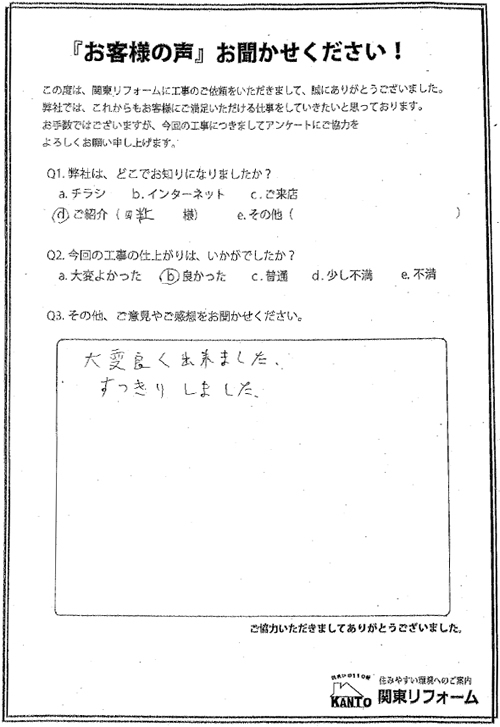 『お客様の声』お聞かせください！
この度は、関東リフォームに工事のご依頼をいただきまして、誠にありがとうございました。
弊社では、これからもお客様にご満足いただける仕事をしていきたいと思っております。
お手数ではございますが、今回の工事につきましてアンケートにご協力を
よろしくお願い申し上げます。
Q1. 弊社は、どこでお知りになりましたか？
a. チラシ b. インターネット c. ご来店
d ご紹介（ 様） e. その他（ ）
Q2. 今回の工事の仕上がりは、いかがでしたか？
a. 大変よかった b 良かった c. 普通 d. 少し不満 e. 不満
Q3. その他、ご意見やご感想をお聞かせください。
大変良く出来ました、
すっきりしました。
ご協力いただきましてありがとうございました。
住みやすい環境へのご案内
KANTO 関東リフォーム